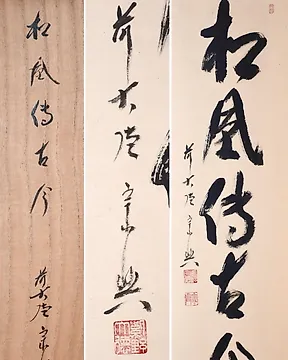 松風傳古今
前大徳宗興
前大徳宗興
松風傳古今
前大徳宗興